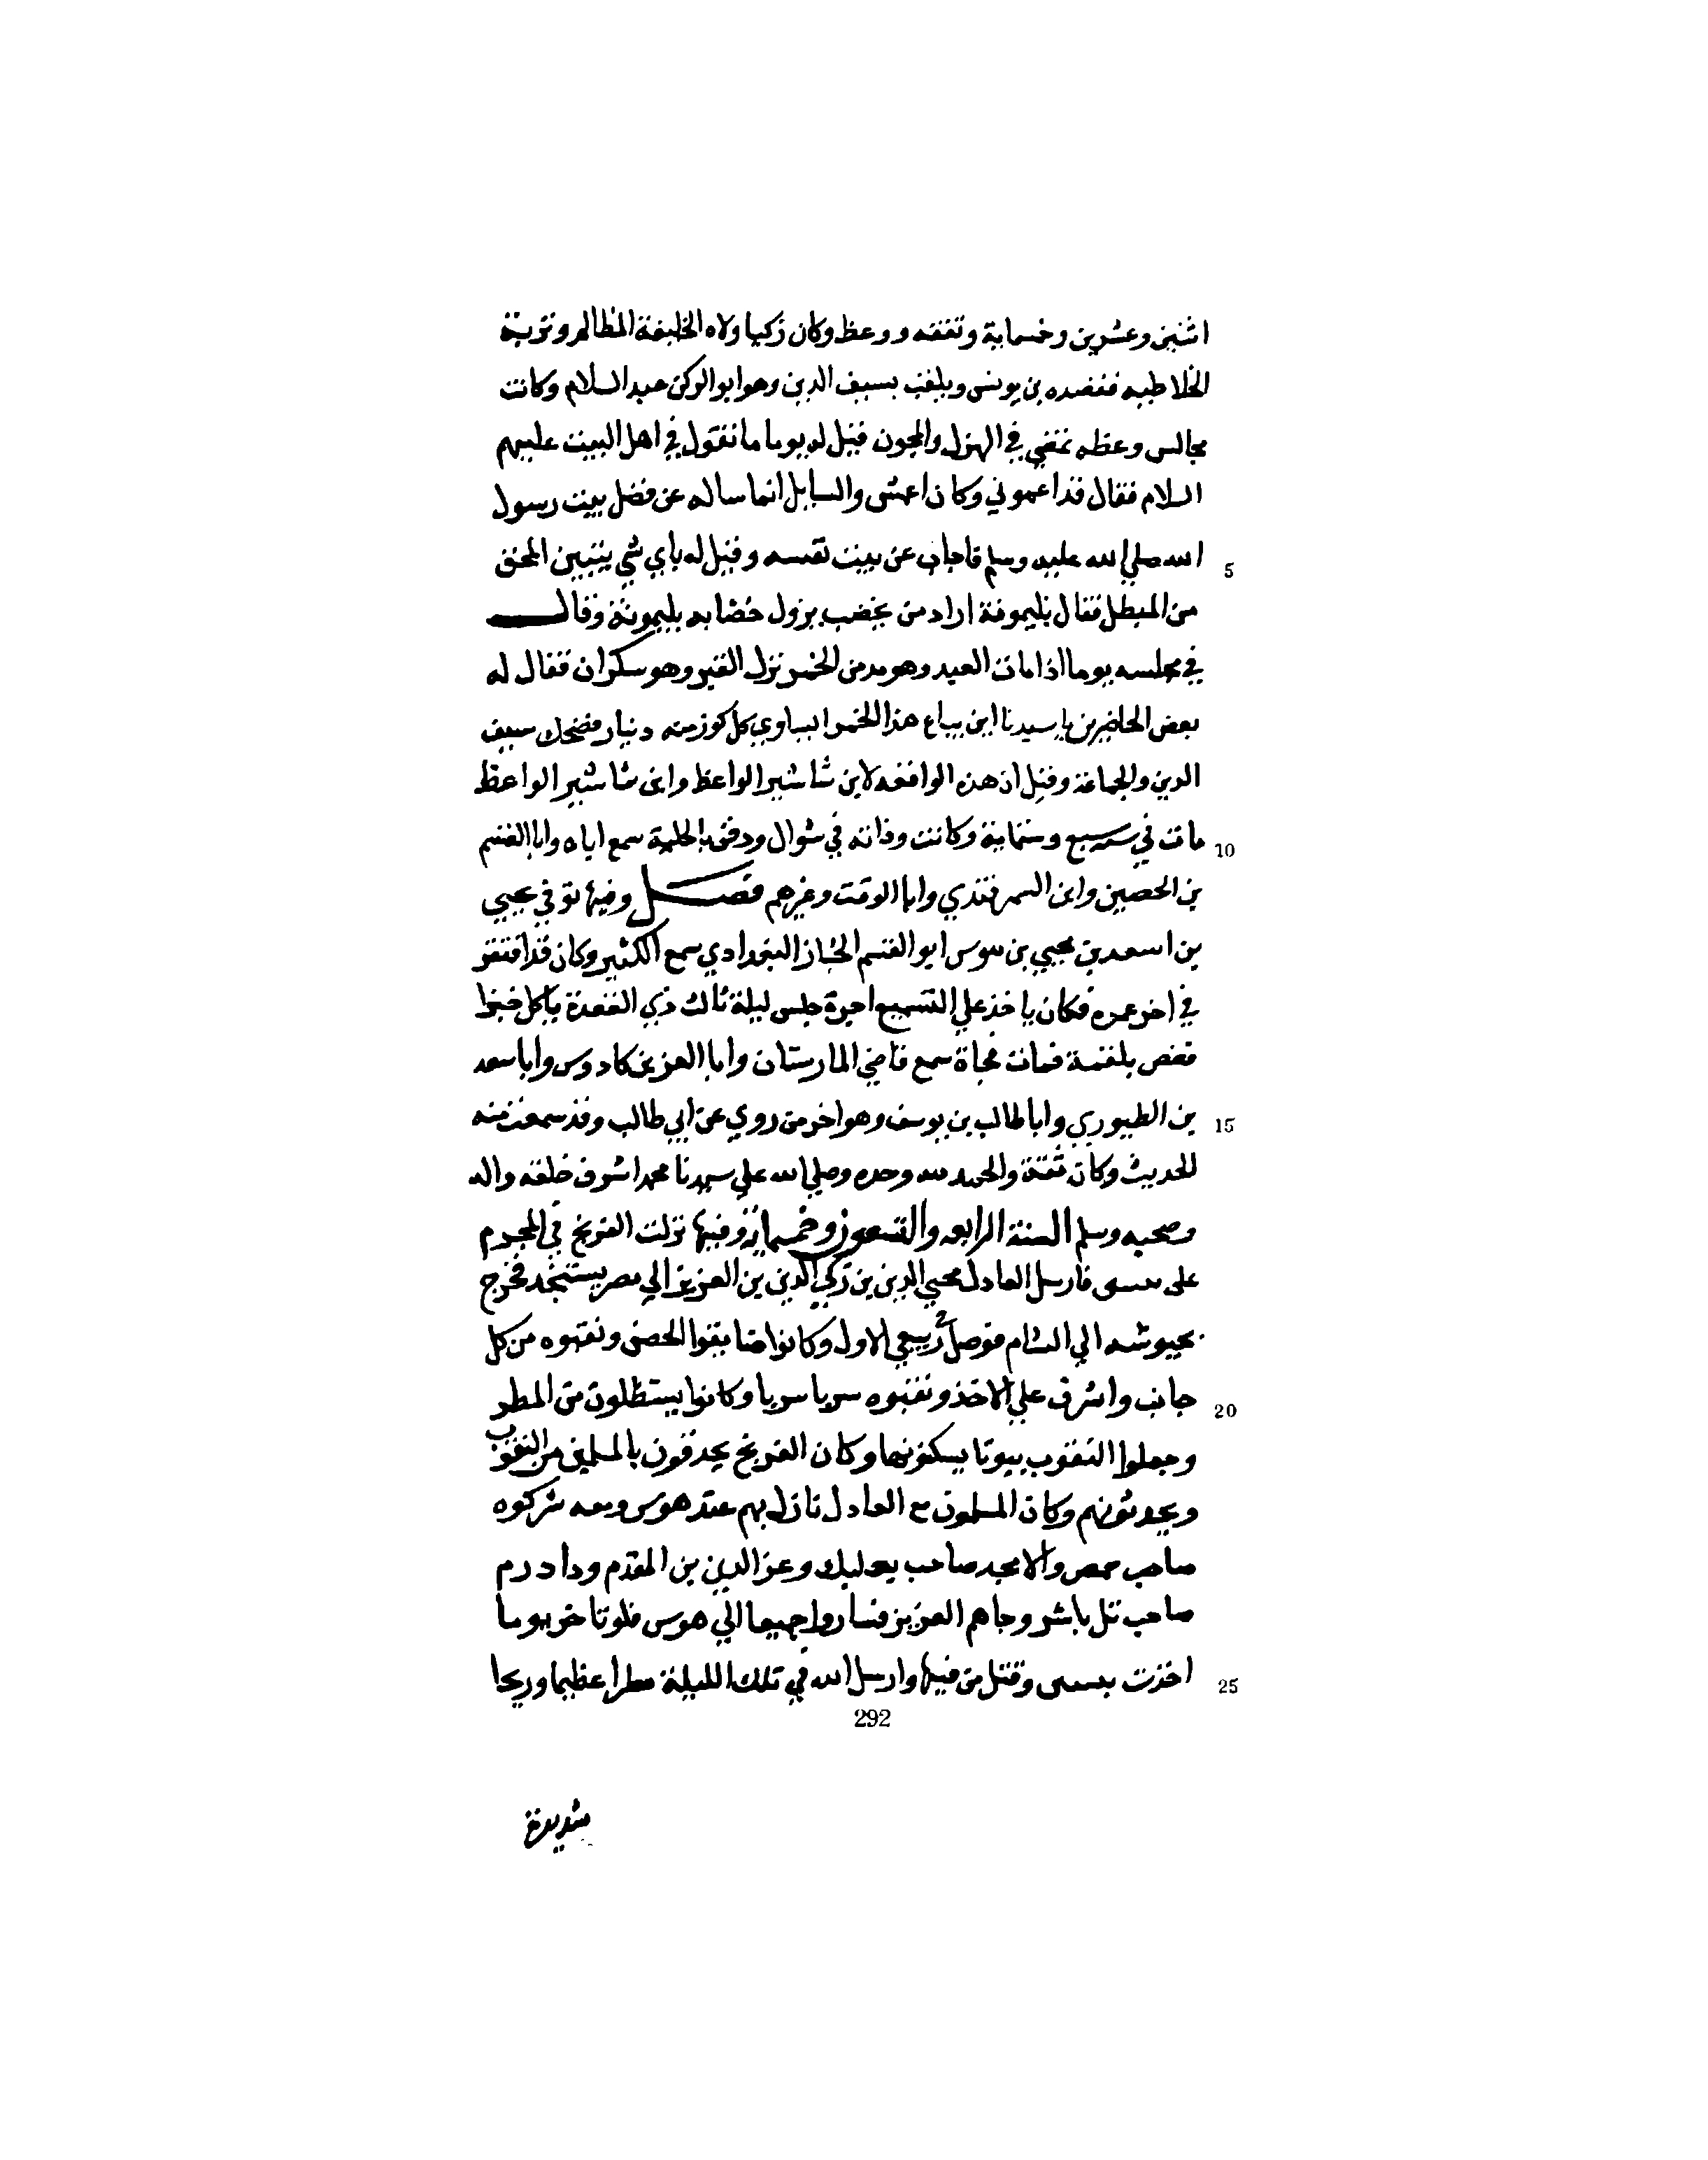 اثنين وعشرين وخمسماية وتفقه ووعظ وكان زكيا ولاه الخليفة المظالم وتربة
الخلاطيه فقصده بن يونس ويلقب بسيف الدين وهو ابو الركن عبد السلام وكانت
مجالس وعظه تمضي في الهزل والمجون فقيل له يوما ما تقول في اهل البيت عليهم
السلام فقال قد اعموني وكان اعمش والسايل انما ساله عن فضل بيت رسول
5 الله صلي الله عليه وسلم فاجاب عن بيت نفسه وقيل له باي شي يتبين المحق
من المبطل فقال بليمونة اراد من يخضب يزول خضابه بليمونة وقال
في مجلسه يوما اذا مات العبد وهو مدمن الخمر نزل القبر وهو سكران فقال له
بعض الحاضرين يا سيدنا اين يباع هذا الخمر ايساوي كل كوز منه دينار فضحك سيف
الدين والجماعة وقيل ان هذه الواقعة لابن شاشير الواعظ وابن شاشير الواعظ
10 مات في سنة سبع وستماية وكانت وفاته في شوال ودفن بالحلبة سمع اباه وابا القسم
بن الحصين وابن السمرقندي وابا الوقت وغيرهم فصل وفيها توفي يحيي
بن اسعد بن يحيي بن بوس ابو القسم الخباز البغدادي سمع الكثير وكان قد افتقر
في اخر عمره فكان ياخذ علي التسميع اجرة جلس ليلة ثالث ذي القعدة ياكل خبزا
فغص بلقمة فمات فجاة سمع قاضي المارستان وابا العز بن كادوس وابا سعد
15 بن الطيوري وابا طالب بن يوسف وهو اخر من روي عن ابي طالب وقد سمعت منه
الحديث وكان ثقة والحمد لله وحده وصلي الله علي سيدنا محمد اشرف خلقه واله
وصحبه وسلم السنة الرابعه والتسعون وخمسماية وفيها نزلت الفرنج في المحرم
على تبنين فارسل العادل محيي الدين بن زكي الدين بن العزيز الي مصر يستنجد فخرج
بجيوشه الي الشام فوصل ربيع الاول وكانوا ضايقوا الحصن ونقبوه من كل
20 جانب واشرف علي الاخذ ونقبوه سربا سربا وكانوا يستظلون من المطر
وجعلوا النقوب بيوتا يسكنونها وكان الفرنج يحدقون بالمسلمين من النقوب
ويحدثونهم وكان المسلمون مع العادل نازل بهم عند هونين ومعه شركوه
صاحب حمص والامجد صاحب بعلبك وعز الدين بن المقدم ودادرم
صاحب تل باشر وجاهم العزيز فساروا جميعا الي هوس فلو تاخر يوما
25 اخذت تبنين وقتل من فيها وارسل الله في تلك الليلة مطرا عظيما وريحا
292
شديدة